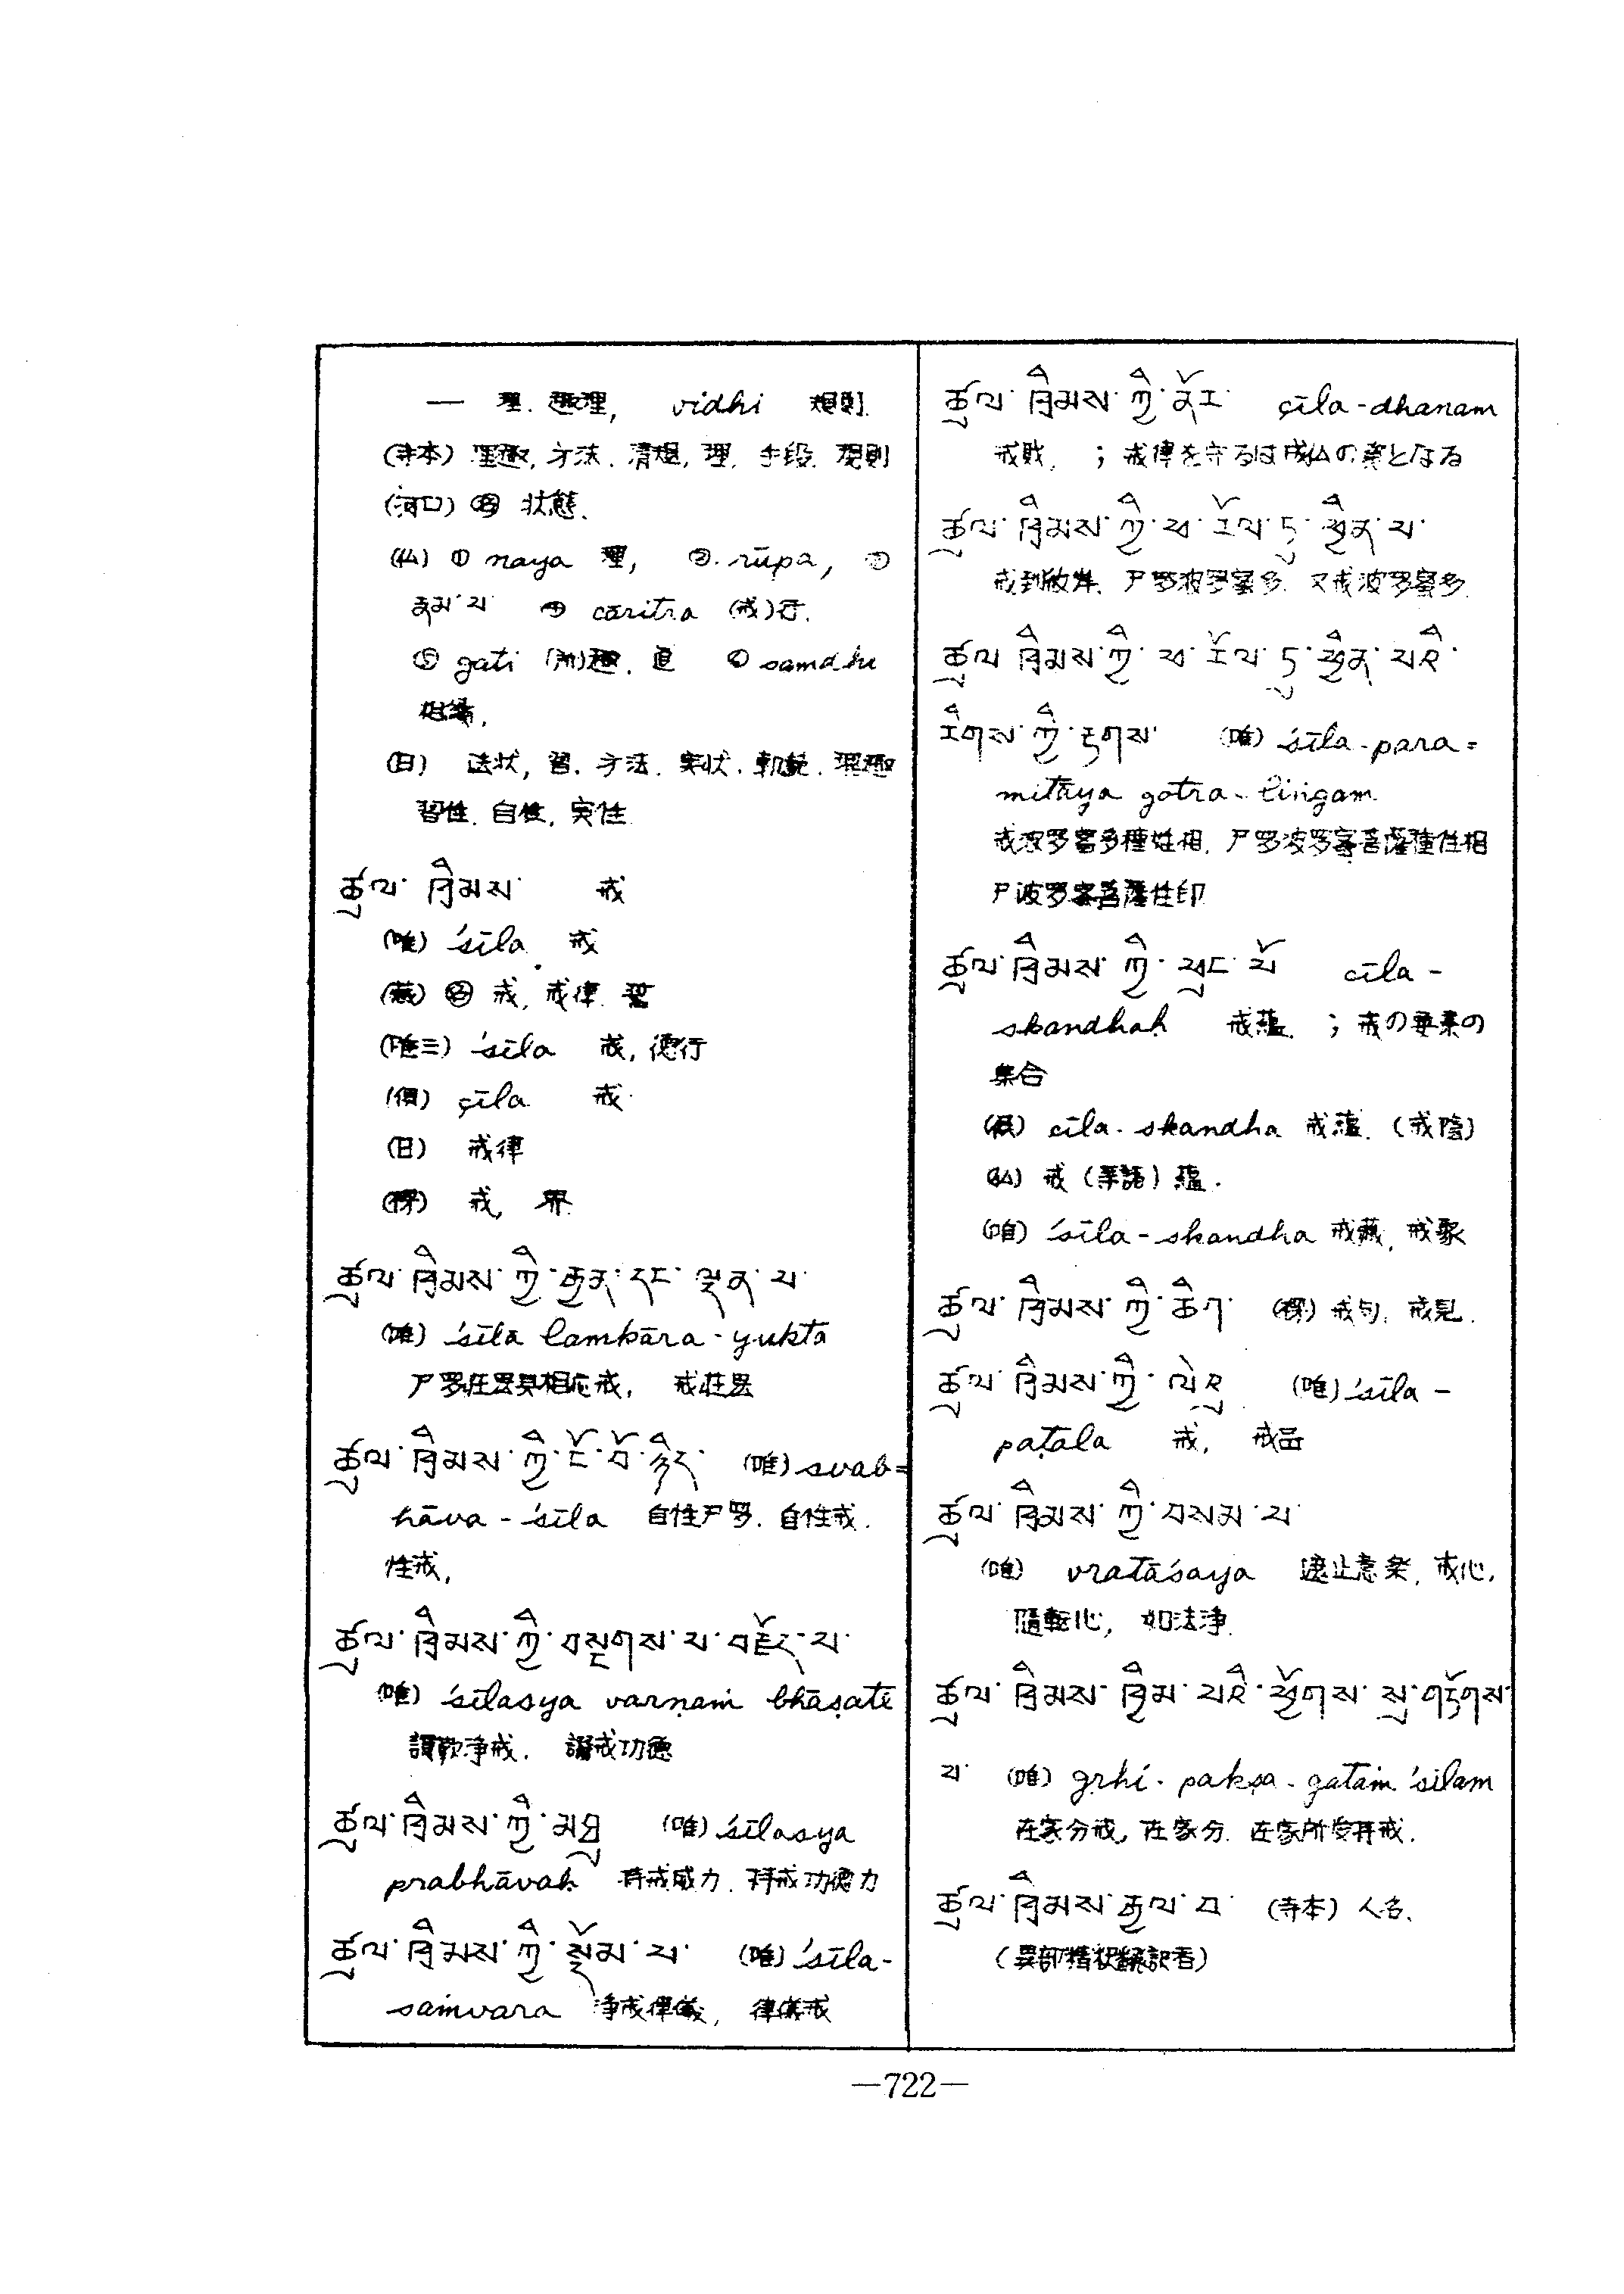 一 理. 趣理, vidhi 規則.
(寺本) 理趣, 方法. 清規, 理. 手段. 規則
(河口) 名 状態.
(仏) ① naya 理, ② rūpa, ③
རྣམ་པ ④ cāritra (戒)行.
⑤ gati (所)趣. 道 ⑥ samdhi
相続.
(日) 法状, 習. 方法. 実状. 軌範. 理趣
習性. 自性. 実性
ཚུལ་ཁྲིམས་ 戒
(唯) śīla 戒
(蔵) 名 戒, 戒律. 習
(唯三) śīla 戒, 徳行
(倶) çīla 戒.
(日) 戒律
(梶) 戒, 界.
ཚུལ་ཁྲིམས་ཀྱི་རྒྱན་དང་ལྡན་པ་
(唯) śīla lamkāra-yukta
尸羅荘厳具相応戒, 戒荘厳
ཚུལ་ཁྲིམས་ཀྱི་ངོ་བོ་ཉིད་ (唯) svab=
hāva-śīla 自性尸罗. 自性戒.
性戒,
ཚུལ་ཁྲིམས་ཀྱི་བསྔགས་པ་བརྗོད་པ་
(唯) śīlasya varṇaṁ bhāṣate
讃歎浄戒. 讃戒功徳
ཚུལ་ཁྲིམས་ཀྱི་མཐུ (唯) śīlasya
prabhāvaḥ 持戒威力. 持戒功徳力
ཚུལ་ཁྲིམས་ཀྱི་སྡོམ་པ་ (唯) śīla-
saṁvara 浄戒律儀, 律儀戒
ཚུལ་ཁྲིམས་ཀྱི་ནོར་ çīla-dhanam
戒財. ; 戒律を守るは成仏の業となる
ཚུལ་ཁྲིམས་ཀྱི་ཕ་རོལ་ཏུ་ཕྱིན་པ་
戒到彼岸. 尸罗波罗蜜多. 又戒波罗蜜多.
ཚུལ་ཁྲིམས་ཀྱི་ཕ་རོལ་ཏུ་ཕྱིན་པའི་
རིགས་ཀྱི་རྟགས་ (唯) śīla-para=
mitāya gotra-lingam.
戒波罗蜜多種姓相. 尸罗波罗蜜菩薩種性相
尸波罗蜜菩薩性印
ཚུལ་ཁྲིམས་ཀྱི་ཕུང་པོ cīla-
skandhaḥ 戒蘊. ; 戒の要素の
集合
(倶) cīla-skandha 戒蘊. (戒陰)
(仏) 戒 (業語) 蘊.
(唯) śīla-skandha 戒蔵, 戒聚
ཚུལ་ཁྲིམས་ཀྱི་ཚིག་ (梶) 戒句. 戒見.
ཚུལ་ཁྲིམས་ཀྱི་ལེའུ (唯) śīla-
paṭala 戒, 戒品
ཚུལ་ཁྲིམས་ཀྱི་བསམ་པ་
(唯) vratāśaya 遠止意楽, 戒心.
隨転心, 如法浄.
ཚུལ་ཁྲིམས་ཁྱིམ་པའི་ཕྱོགས་སུ་གཏོགས་
པ་ (唯) gṛhi-pakṣa-gataṁ śilam
在家分戒, 在家分. 在家所受持戒.
ཚུལ་ཁྲིམས་རྒྱལ་བ་ (寺本) 人名.
(異部精釈翻訳者)
—722—